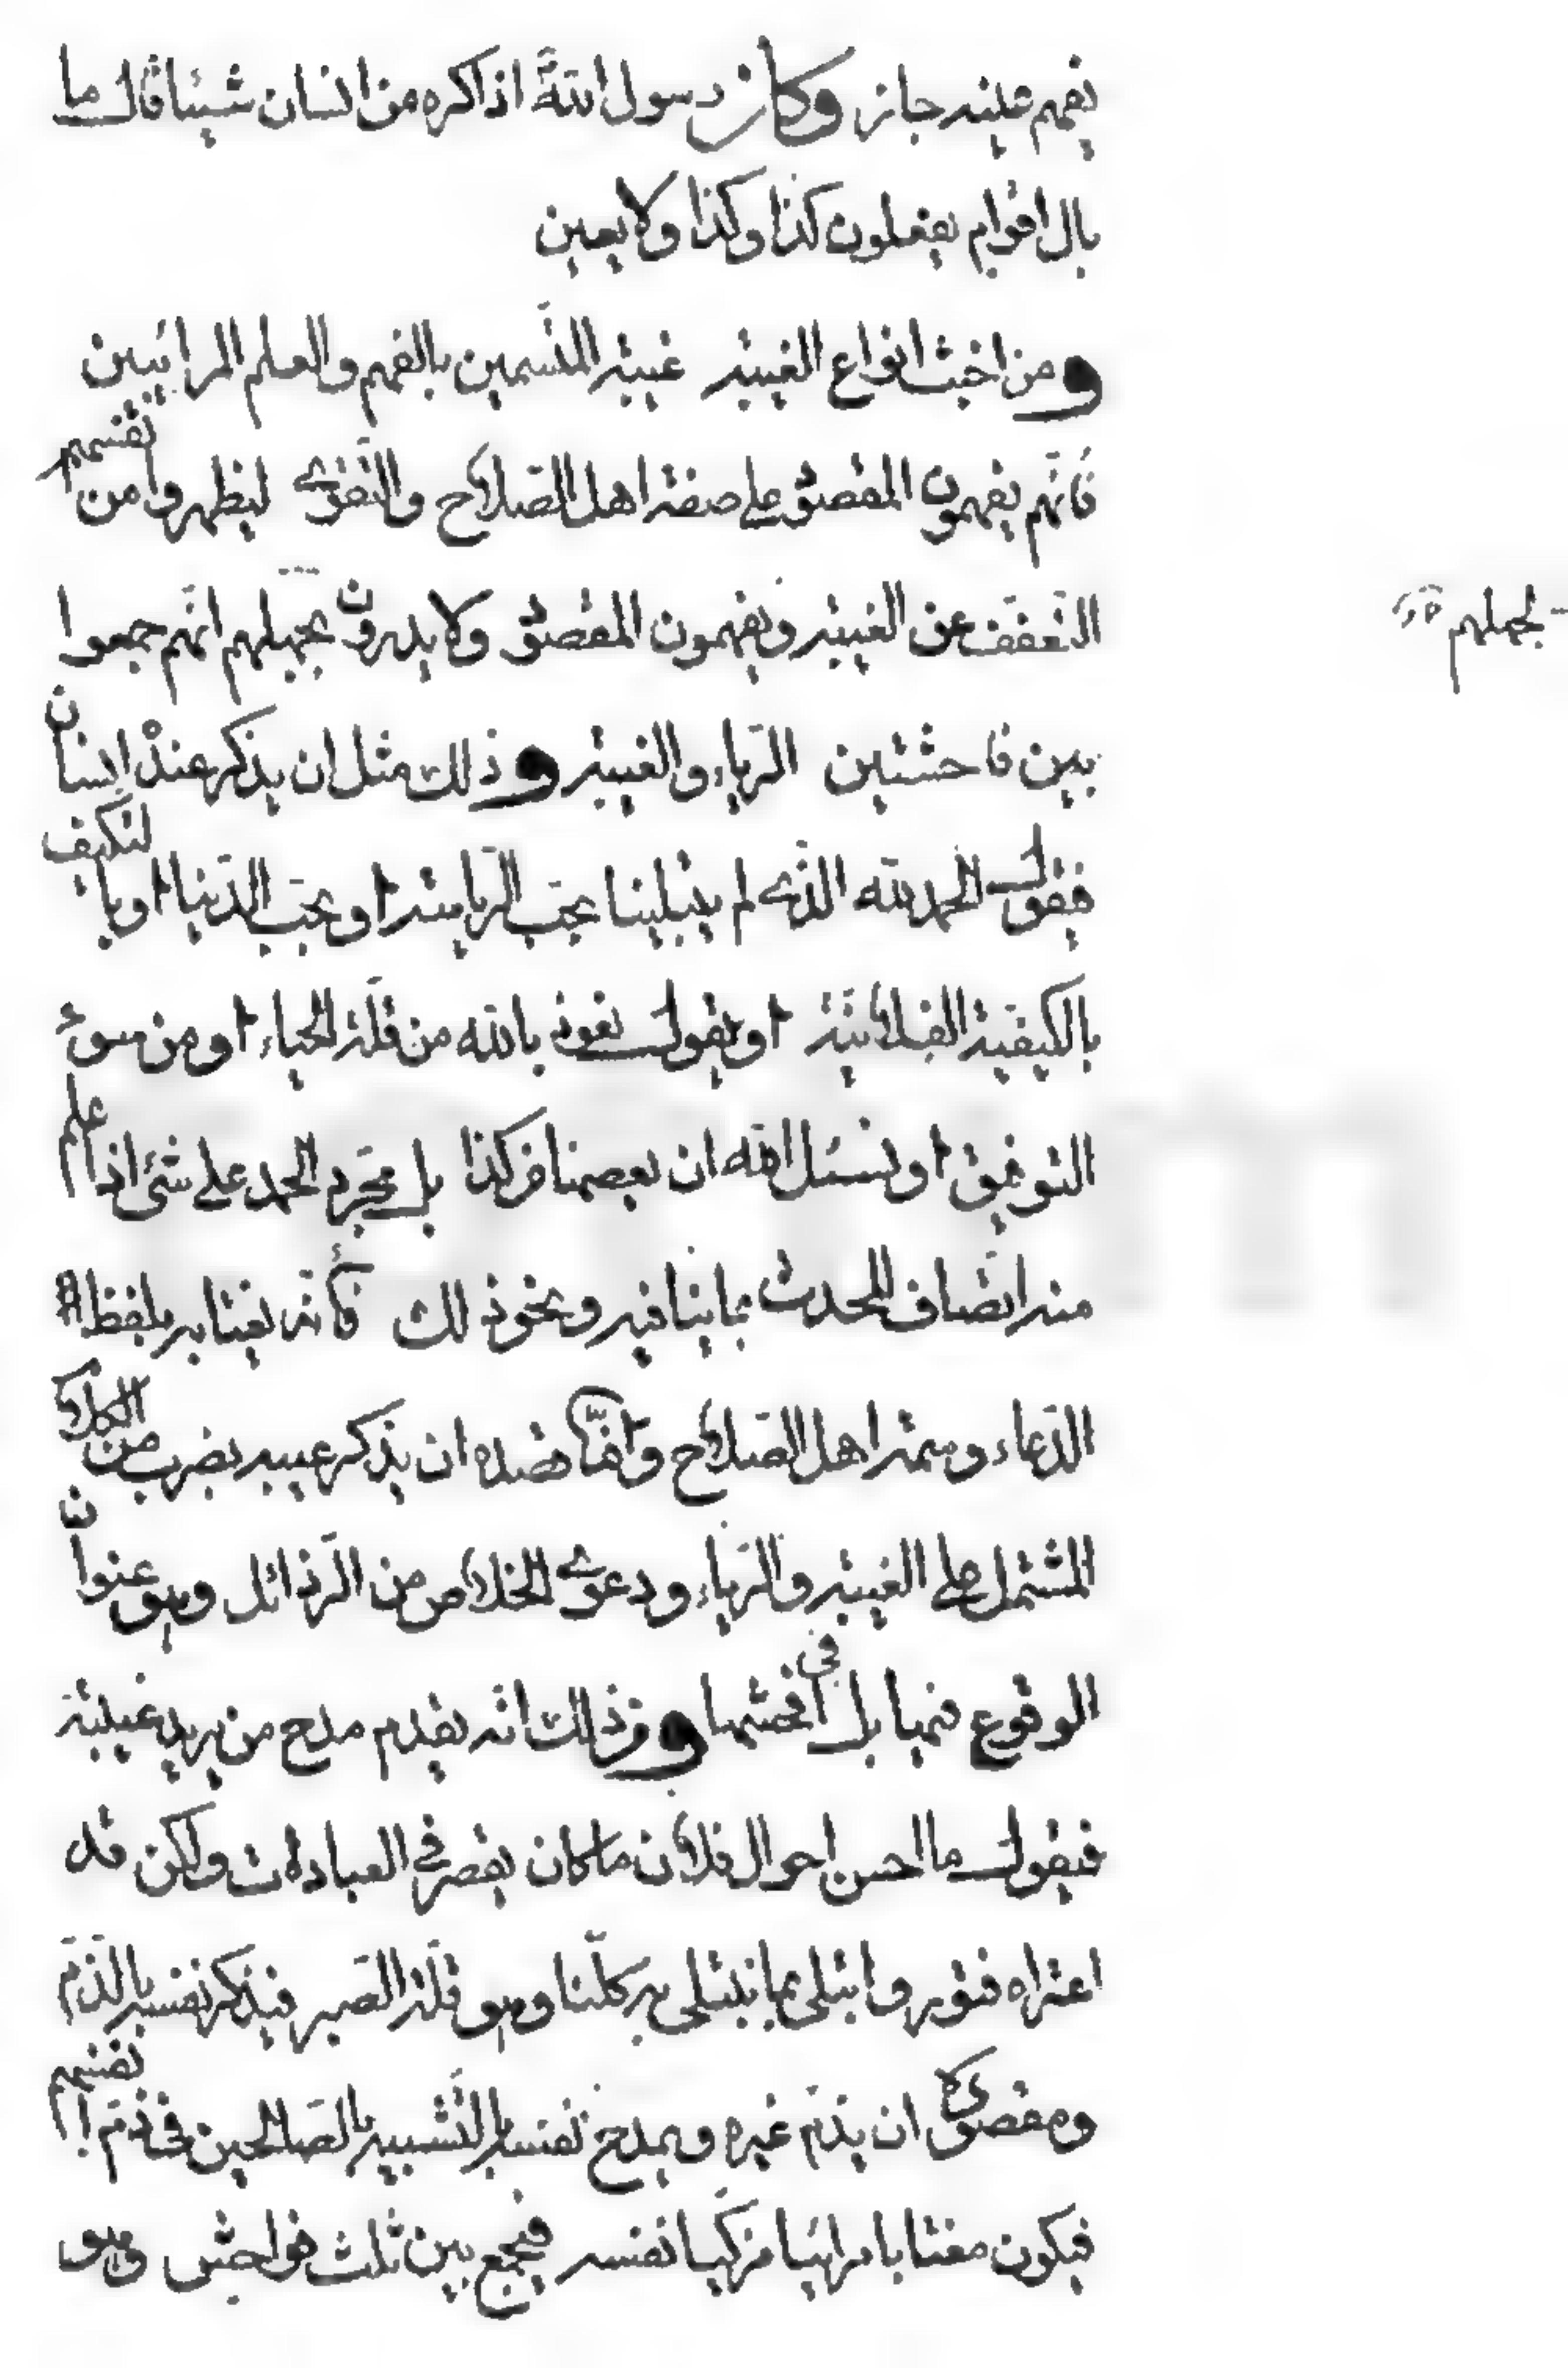 يفهم عينه جاز وكان رسول الله اذا كره من انسان شيئا قال ما
بال اقوام يفعلون كذا وكذا ولا يعين
ومن اخبث انواع الغيبة غيبة المتسمين بالفهم والعلم المرائيين
فانهم يفهمون المقصود على صفة اهل الصلاح والتقوى ليظهروا من انفسهم
التعفف عن الغيبة ويفهمون المقصود ولا يدرون بجهلهم انهم جمعوا
لجهلهم
بين فاحشتين الرياء والغيبة وذلك مثل ان يذكر عنده انسان
فيقول الحمد لله الذي لم يبتلينا بحب الرياسة او بحب الدنيا او بالتكيف
بالكيفية الفلانية او يقول نعوذ بالله من قلة الحياء او من سوء
التوفيق او نسئل الله ان يعصمنا من كذا بل مجرد الحمد على شئ اذا علم
منه اتصاف المحدث بما ينافيه ونحو ذلك فانه يغتابه بلفظ
الدعاء وسمة اهل الصلاح وانما قصده ان يذكر عيبه بضرب من الكلام
المشتمل على الغيبة والرياء ودعوى الخلاص من الرذائل وهو عنوان
الوقوع فيها بل في افحشها ومن ذلك انه يقدم مدح من يريد غيبته
فيقول ما احسن احوال فلان ما كان يقصر في العبادات ولكن قد
اعتراه فتور وابتلى بما يبتلى به كلنا وهو قلة الصبر فيذكر نفسه بالذم
ومقصوده ان يذم غيره ويمدح نفسه بالتشبيه بالصالحين في ذم انفسهم
فيكون مغتابا مرائيا مزكيا نفسه فيجمع بين ثلث فواحش وهو